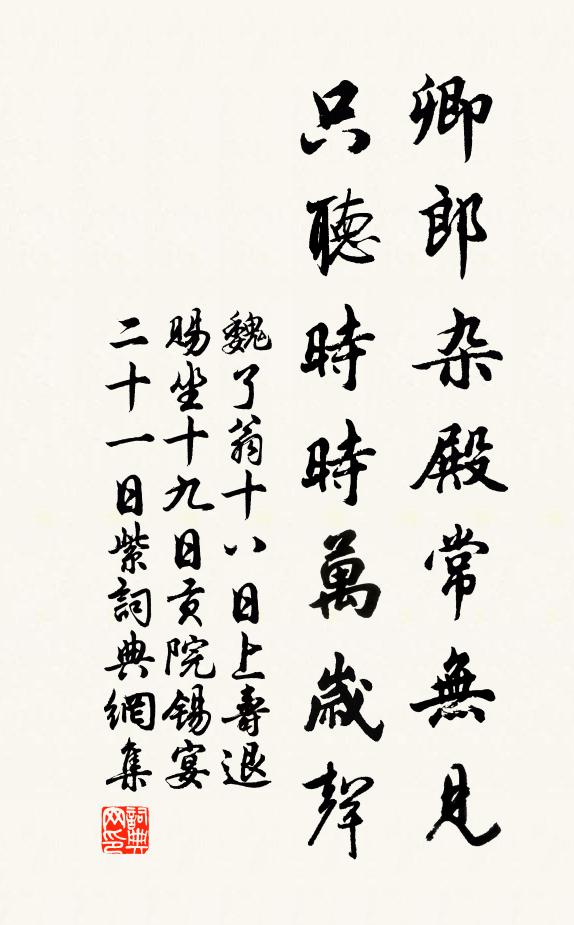 卿郎杂殿常無見
只聽時時萬歲聲
魏了翁十八日上壽退
賜坐十九日貢院锡宴
二十一日紫詞典網集
詞典网印